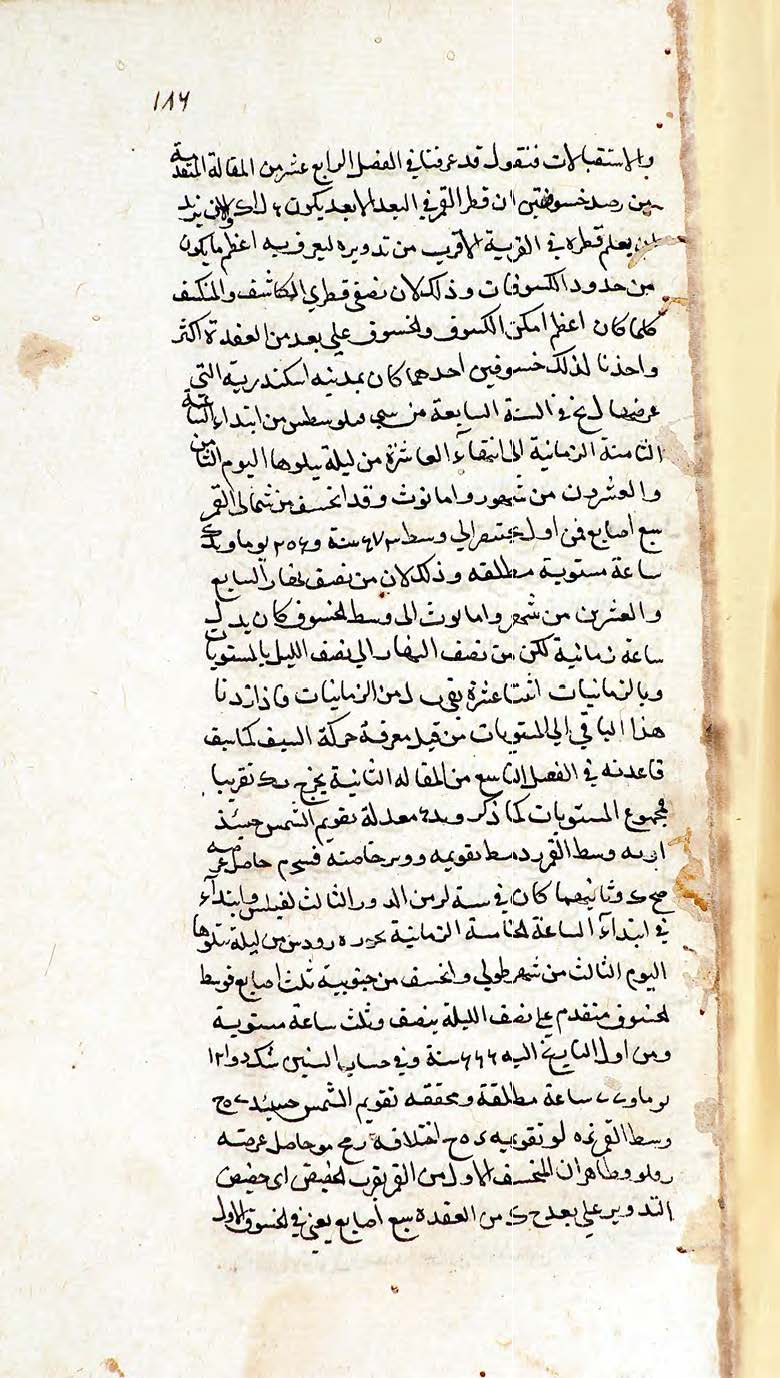 ١٨٦
والاستقبالات فنقول قد عرفنا في الفصل الرابع عشر من المقالة المتقدمة
من رصد خسوفين ان قطر القمر في البعد الابعد يكون والان نريد
ان يعلم قطره في القريبة الاقرب من تدويره ليعرف به اعظم ما يكون
من حدود الكسوفات وذلك لان نصفي قطري الكاسف والمنكسف
كلما كان اعظم امكن الكسوف والخسوف على بعد من العقدة اكثر
واخذنا لذلك خسوفين احدهما كان بمدينه اسكندرية التي
عرضها ل نح في السنة السابعة من سني من ابتداء الساعة
الثامنة الزمانية الى انتهاء العاشرة من ليلة يتلوها اليوم الثامن
والعشرون من شهور وامانوث وقد انخسف من شمالي القمر
سبع اصابع فمن اول بختنصر الى وسط ٦٧٣ سنة و ٢٥٦ يوما و
ساعة مستوية مطلقه وذلك لان من نصف نهار السابع
والعشرين من شهر وامانوث الى وسط الخسوف كان يد ل
ساعة زمانية لكن من نصف النهار الى نصف الليل بالمستويات
وبالزمانيات اثنتا عشرة بقي من الزمانيات فاذا زدنا
هذا الباقي الى المستويات من قبل معرفة حركة النيف كما سبف
قاعدته في الفصل التاسع من المقاله الثانية يخرج تقريبا
فمجموع المستويات كما ذكر معدلة تقويم الشمس حينئذ
وسط القمر تقويمه خاصته حاصل عرضه
صح وثانيهما كان في سنة لر من الدور الثالث لفيلس وابتداء
في ابتداء الساعة الخامسة الزمانية بجزيره رودس من ليلة يتلوها
اليوم الثالث من شهر طوبي وانخسف من جنوبية ثلث اصابع فوسط
الخسوف متقدم على نصف الليلة بنصف وثلث ساعة مستوية
ومن اول التاريخ اليه ٦٠٦ سنة وفي حساب السنين ١٢١
يوما و ساعة مطلقة ومحققه تقويم الشمس حينئذ
وسط القمر تقويمه اختلافه حاصل عرضه
وظاهر ان المنخسف الاول من القمر بقرب الحضيض اى حضيض
التدوير على بعد ح ك من العقدة سبع أصابع يعني في الخسوف الاول